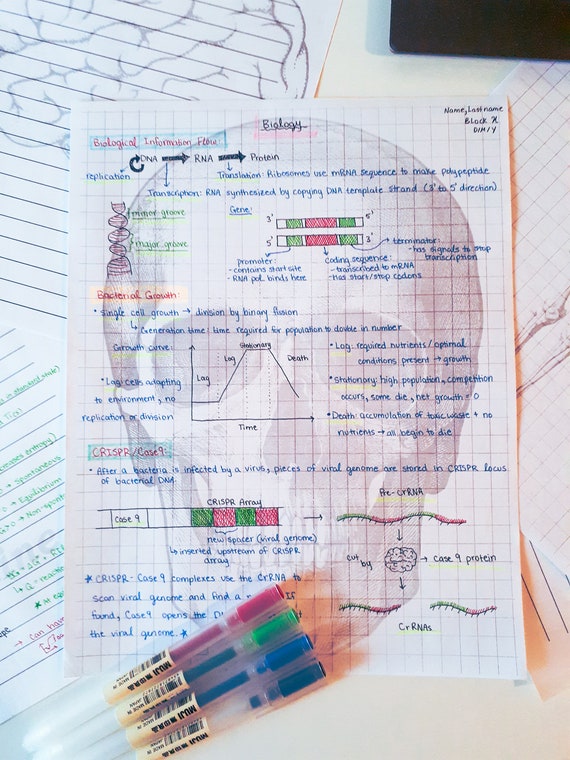 Name, Lastname
Block X
D/M/Y
Biology
Biological Information Flow:
DNA → RNA → Protein
replication
Translation: Ribosomes use mRNA sequence to make polypeptide
Transcription: RNA synthesized by copying DNA template strand (3' to 5' direction)
minor groove
major groove
Gene:
3' 5'
5' 3'
promoter:
- contains start site
- RNA pol. binds here
coding sequence:
- transcribed to mRNA
- has start/stop codons
terminator:
- has signals to stop
transcription
Bacterial Growth:
• Single cell growth → division by binary fusion
↳ Generation time: time required for population to double in number
Growth curve:
• Lag: cells adapting
to environment, no
replication or division
Lag
Log
Stationary
Death
Time
• Log: required nutrients/optimal
conditions present → growth
• Stationary: high population, competition
occurs, some die, net growth = 0
• Death: accumulation of toxic waste + no
nutrients → all begin to die
CRISPR/Case9:
• After a bacteria is infected by a virus, pieces of viral genome are stored in CRISPR locus
of bacterial DNA.
CRISPR Array
Case 9
new spacer (viral genome)
↳ inserted upstream of CRISPR
array
Pre-CrRNA
cut
by
→ case 9 protein
CrRNAs
★ CRISPR-Case9 complexes use the CrRNA to
scan viral genome and find a If
found, Case9 opens the
the viral genome. ★
standard state)
entropy
→ Spontaneous
→ Equilibrium
→ Non-spont
MUJI 無印良品
MADE IN JAPAN
MUJI 無印良品
MADE IN JAPAN
MUJI 無印良品
MADE IN JAPAN
MUJI 無印良品